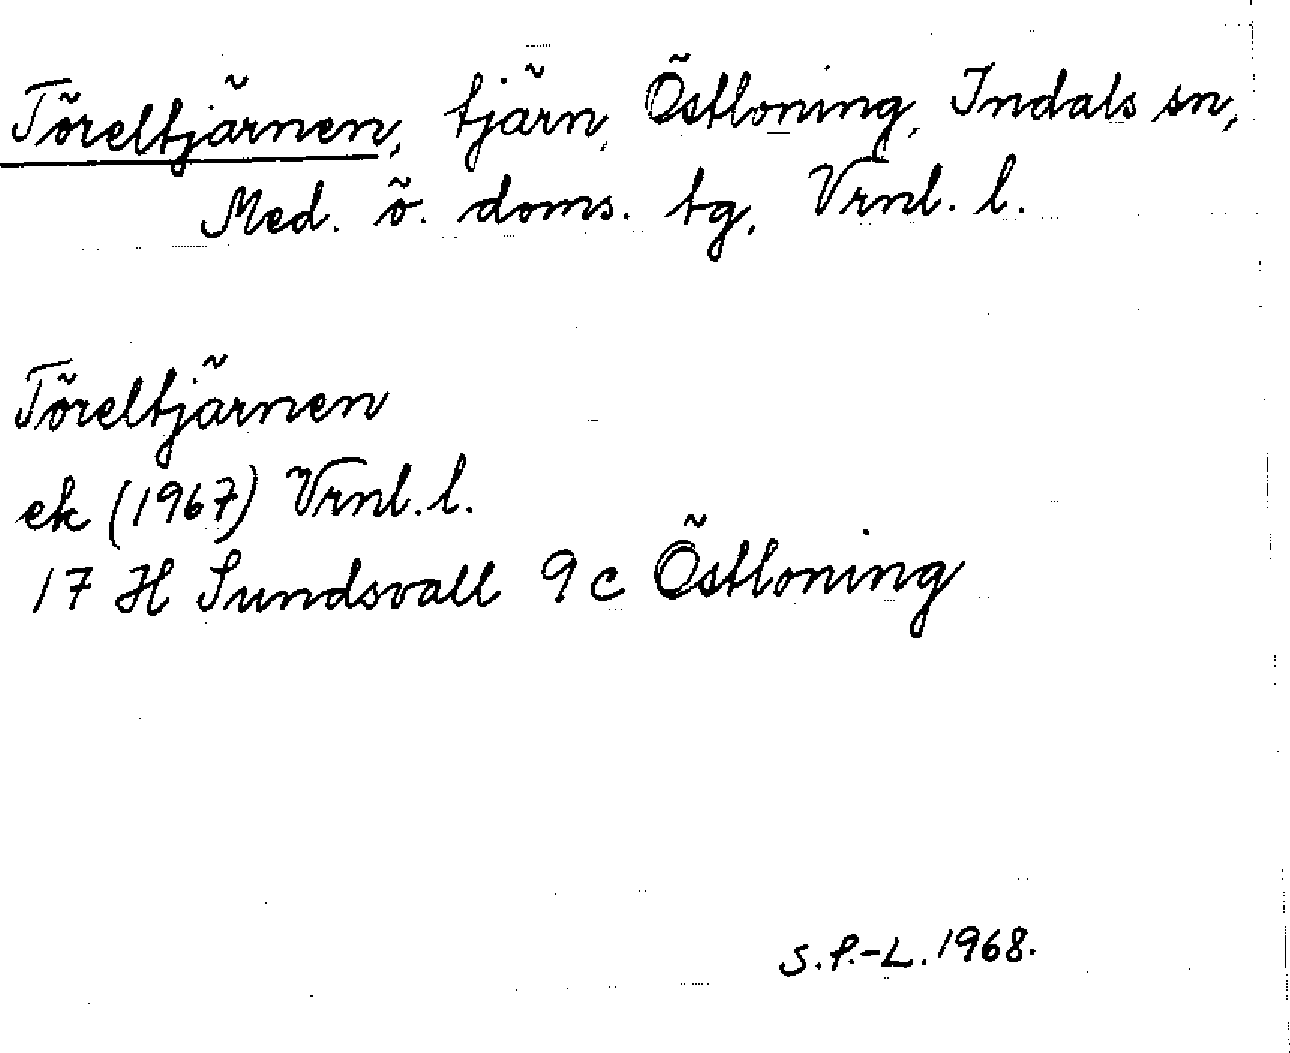 Töreltjärnen, tjärn, Östloning, Indals sn,
Med. ö. doms. tg, Vrnl. l.
Töreltjärnen
ek (1967) Vrnl. l.
17 H Sundsvall 9 c Östloning
S. P.-L. 1968.